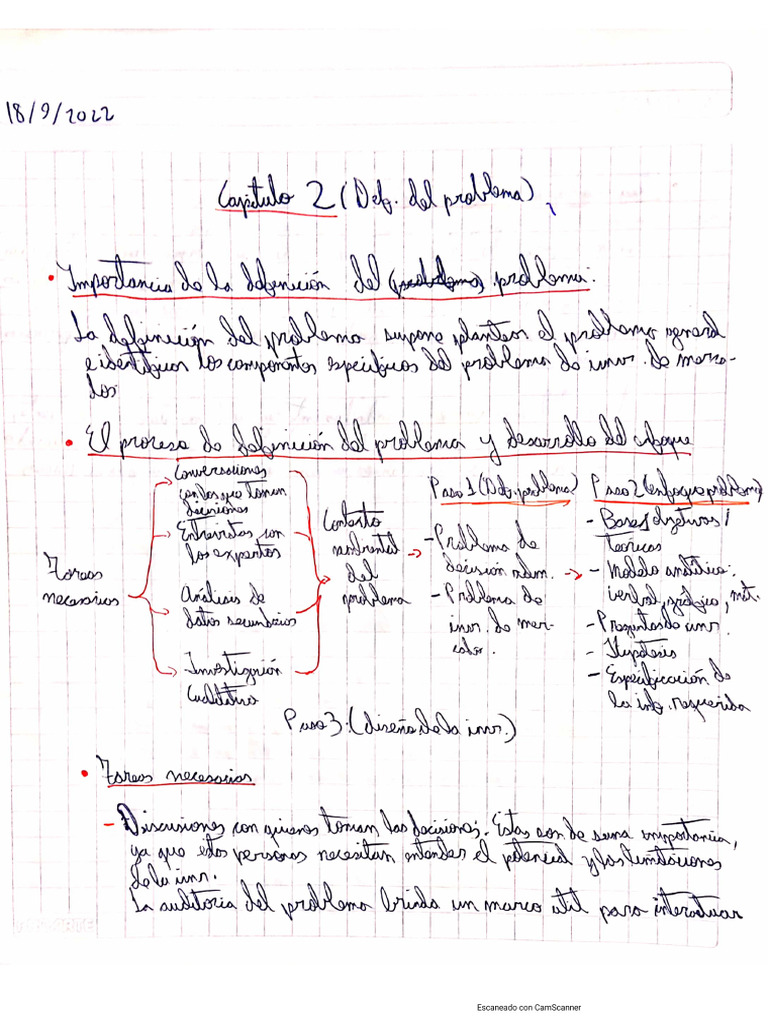 18/9/2022
Capitulo 2 (Def. del problema)
• Importancia de la definición del (problema) problema:
La definición del problema supone plantear el problema general
e identificar los componentes especificos del problema de inv. de merca-
dos
• El proceso de definición del problema y desarrollo del enfoque
Tareas
necesarias
Conversaciones
con los que toman
decisiones
Entrevistas con
los expertos
Análisis de
datos secundarios
Investigación
Cualitativa
Contexto
ambiental
del
problema
Paso 1 (Def. problema)
- Problema de
decisión adm.
- Problema de
inv. de mer-
cados.
Paso 2 (enfoque problema)
- Bases/objetivos/
teóricas
- Modelo analitico:
verbal, gráfico, mat.
- Preguntas de inv.
- Hipotesis
- Especificación de
la inf. requerida
Paso 3. (diseño de la inv.)
• Tareas necesarias
- Discusiones con quienes toman las decisiones. Estas son de suma importancia,
ya que estas personas necesitan entender el potencial y las limitaciones
de la inv.
La auditoria del problema brinda un marco util para interactuar
Escaneado con CamScanner